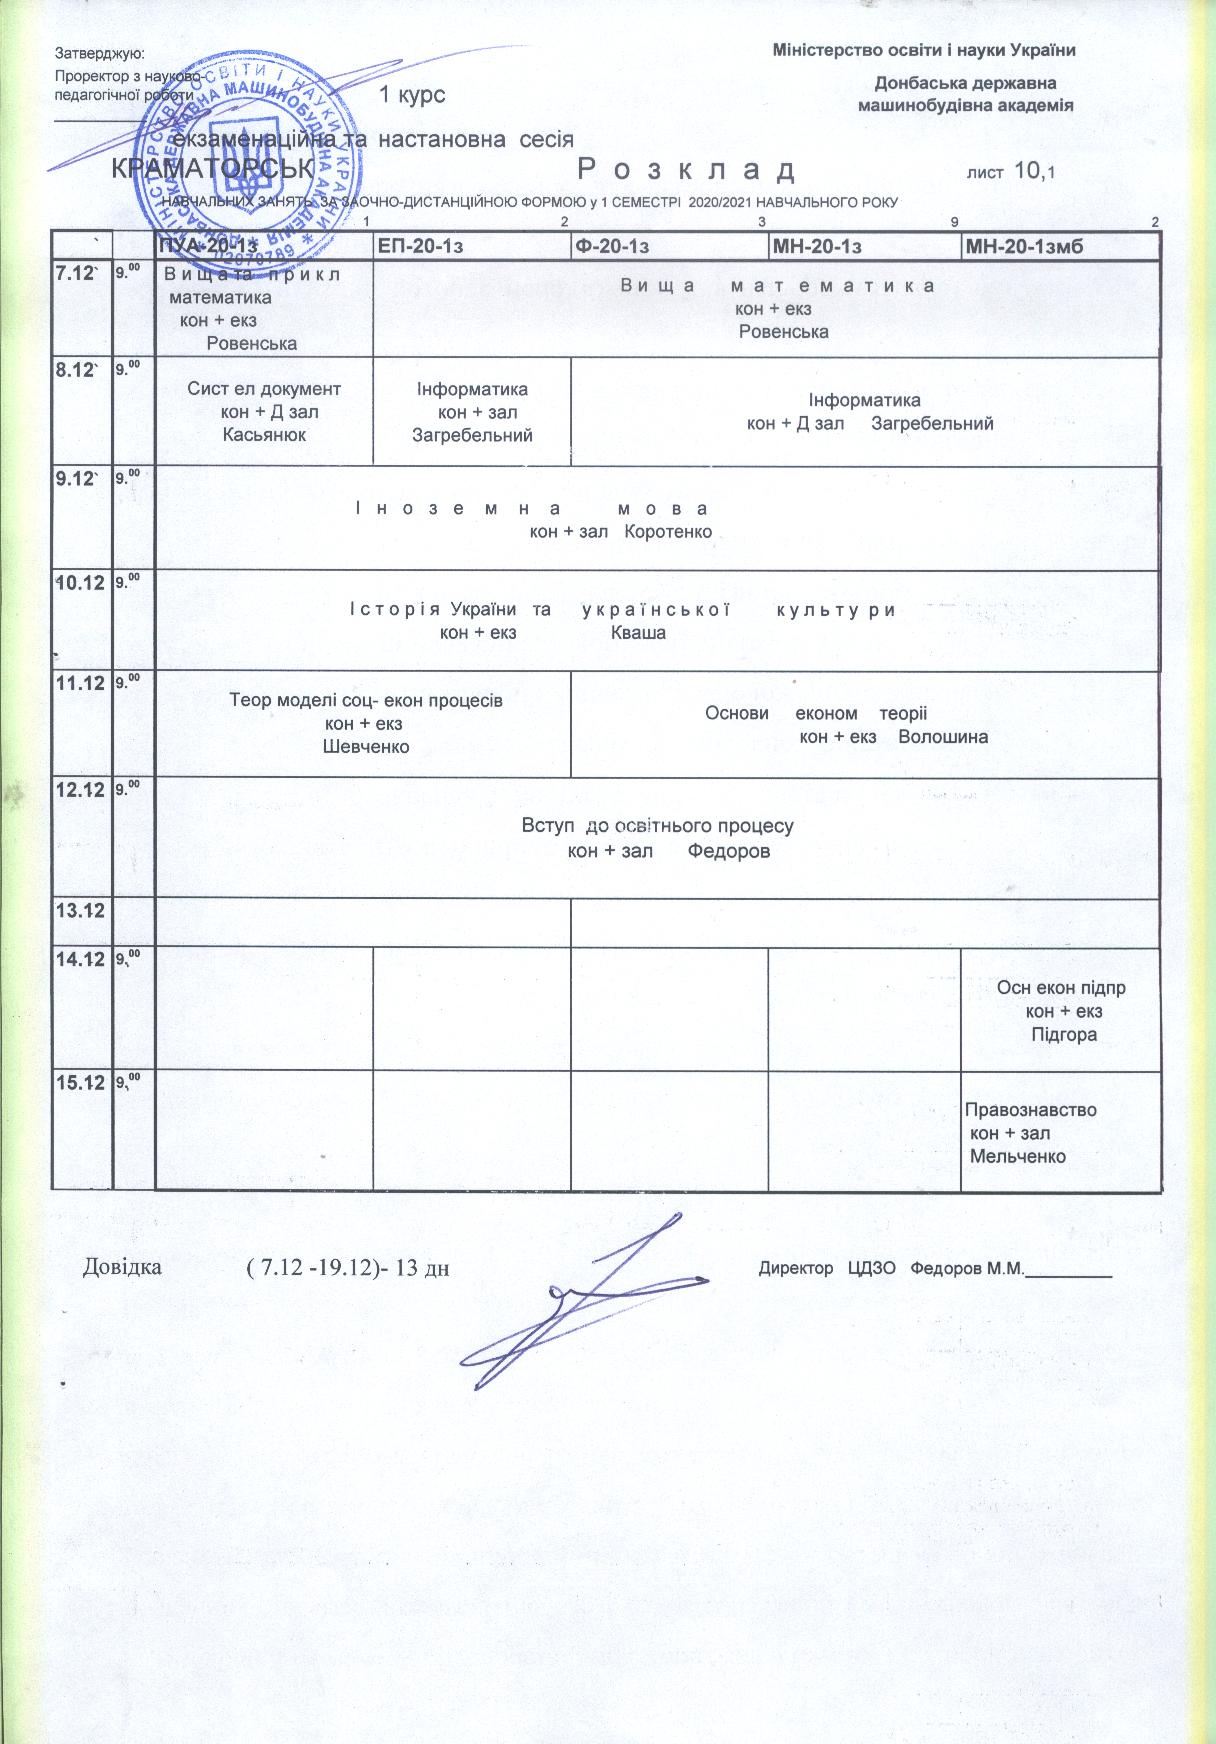 Затверджую:
Проректор з науково-
педагогічної роботи
1 курс
Міністерство освіти і науки України
Донбаська державна
машинобудівна академія
екзаменаційна та настановна сесія
КРАМАТОРСЬК
Р о з к л а д
лист 10,1
НАВЧАЛЬНИХ ЗАНЯТЬ ЗА ЗАОЧНО-ДИСТАНЦІЙНОЮ ФОРМОЮ у 1 СЕМЕСТРІ 2020/2021 НАВЧАЛЬНОГО РОКУ
МІНІСТЕРСТВО ОСВІТИ І НАУКИ УКРАЇНИ
ДОНБАСЬКА ДЕРЖАВНА МАШИНОБУДІВНА АКАДЕМІЯ
02070789
1 2 3 9 2
ПУА-20-1з ЕП-20-1з Ф-20-1з МН-20-1з МН-20-1змб
7.12` 9.00
В и щ а та п р и к л
математика
кон + екз
Ровенська
В и щ а м а т е м а т и к а
кон + екз
Ровенська
8.12` 9.00
Сист ел документ
кон + Д зал
Касьянюк
Інформатика
кон + зал
Загребельний
Інформатика
кон + Д зал Загребельний
9.12` 9.00
І н о з е м н а м о в а
кон + зал Коротенко
10.12 9.00
І с т о р і я України та у к р а ї н с ь к о ї к у л ь т у р и
кон + екз Кваша
11.12 9.00
Теор моделі соц- екон процесів
кон + екз
Шевченко
Основи економ теоріі
кон + екз Волошина
12.12 9.00
Вступ до освітнього процесу
кон + зал Федоров
13.12
14.12 9,00
Осн екон підпр
кон + екз
Підгора
15.12 9,00
Правознавство
кон + зал
Мельченко
Довідка ( 7.12 -19.12)- 13 дн
Директор ЦДЗО Федоров М.М.